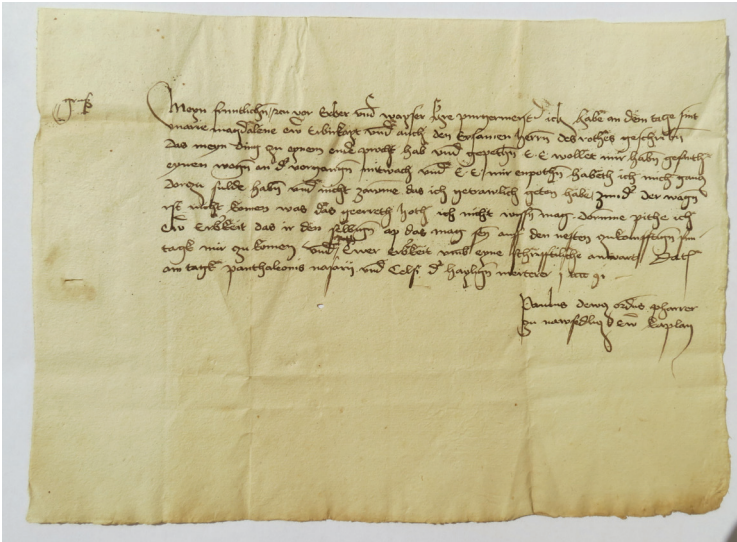 Meyn fruntlichen zcu vor Erber und wayser her purgermeist ich habe an dem tage sint
marie magdalene ew Erberkayt und auch den Ersamen herrn des rothes geschriben
das meyn ding zu eynem ende procht hab und gepethen E E wollet mir haben geschickt
eynen wagen an der vorgangen mitwoch und E E mir enpothen habeth ich mich gancz
dorzu sulde haben und nicht das ich getrawlich geton habe der wagen
ist nicht komen was das geerreth hoth ich nicht wissen mag domine pithe ich
Ew Erberkeit das ir den selbigen ap das mag sey auff den nesten zukomfftigen
tagk mir zu komen und Ewer Erberkeit umb eyne schrifftliche antwort Dat
am tagk panthaleonis nasarii und Celsi der heyligen merterer
Paulus pharrer
zu ew kaplan